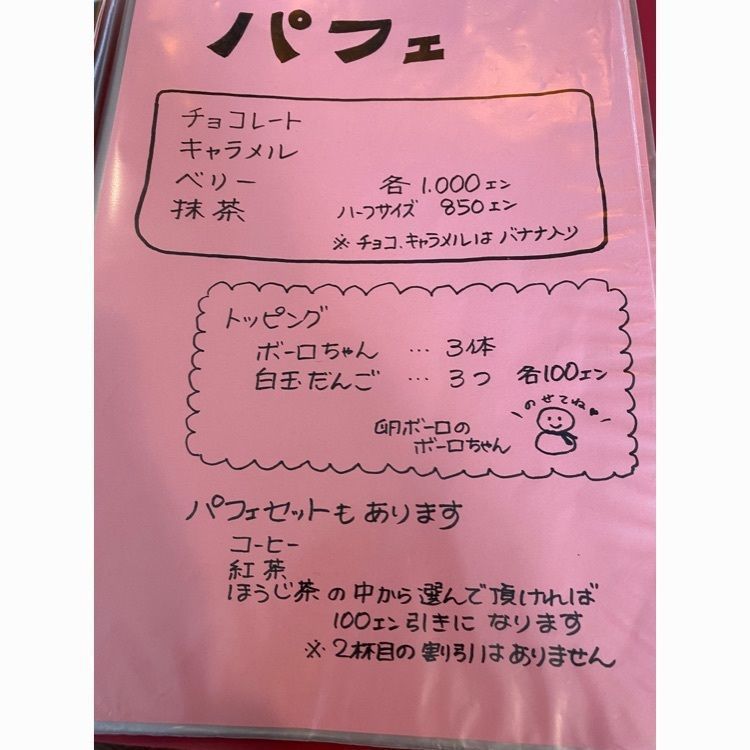 パフェ
チョコレート
キャラメル
ベリー 各 1,000エン
抹茶 ハーフサイズ 850エン
※ チョコ、キャラメルは バナナ入り
トッピング
ボーロちゃん … 3体
白玉だんご … 3つ 各100エン
のせてね♥
卵ボーロの
ボーロちゃん
パフェセットも あります
コーヒー
紅茶
ほうじ茶 の 中から 選んで 頂ければ
100エン引きに なります
※ 2杯目の 割引は ありません